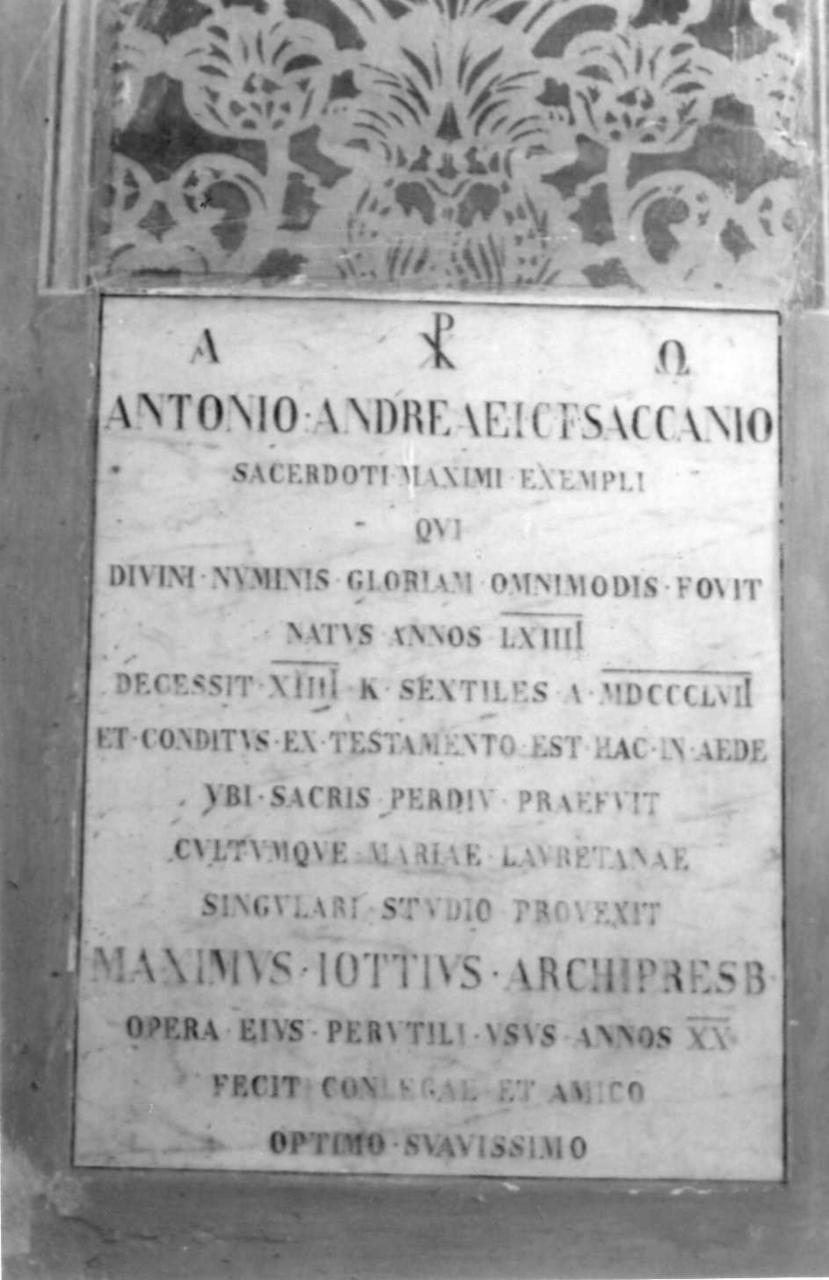 Α ☧ Ω
ANTONIO·ANDREAE I C F SACCANIO
SACERDOTI·MAXIMI·EXEMPLI
QVI
DIVINI·NVMINIS·GLORIAM·OMNIMODIS·FOVIT
NATVS ANNOS LXIIII
DECESSIT·XIIII K·SEXTILES·A·MDCCCLVII
ET·CONDITVS·EX·TESTAMENTO·EST·HAC·IN·AEDE
VBI·SACRIS PERDIV·PRAEFVIT
CVLTVMQVE·MARIAE·LAVRETANAE
SINGVLARI·STVDIO PROVEXIT
MAXIMVS·IOTTIVS·ARCHIPRESB
OPERA EIVS·PERVTILI·VSVS ANNOS XX
FECIT CONLEGAE ET AMICO
OPTIMO·SVAVISSIMO